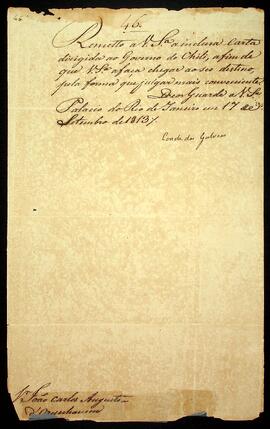 46.
Remetto a V. Sª. a inclusa Carta
dirigida ao Governo do Chili, afim de
que V. Sª a faça chegar ao seo destino,
pela forma que julgar mais conveniente.
Deos Guarde a V. Sª
Palacio do Rio de Janeiro em 17 de
Setembro de 1813
Conde das Galveas
Sr. João Carlos Augusto
d'Oeynhausen